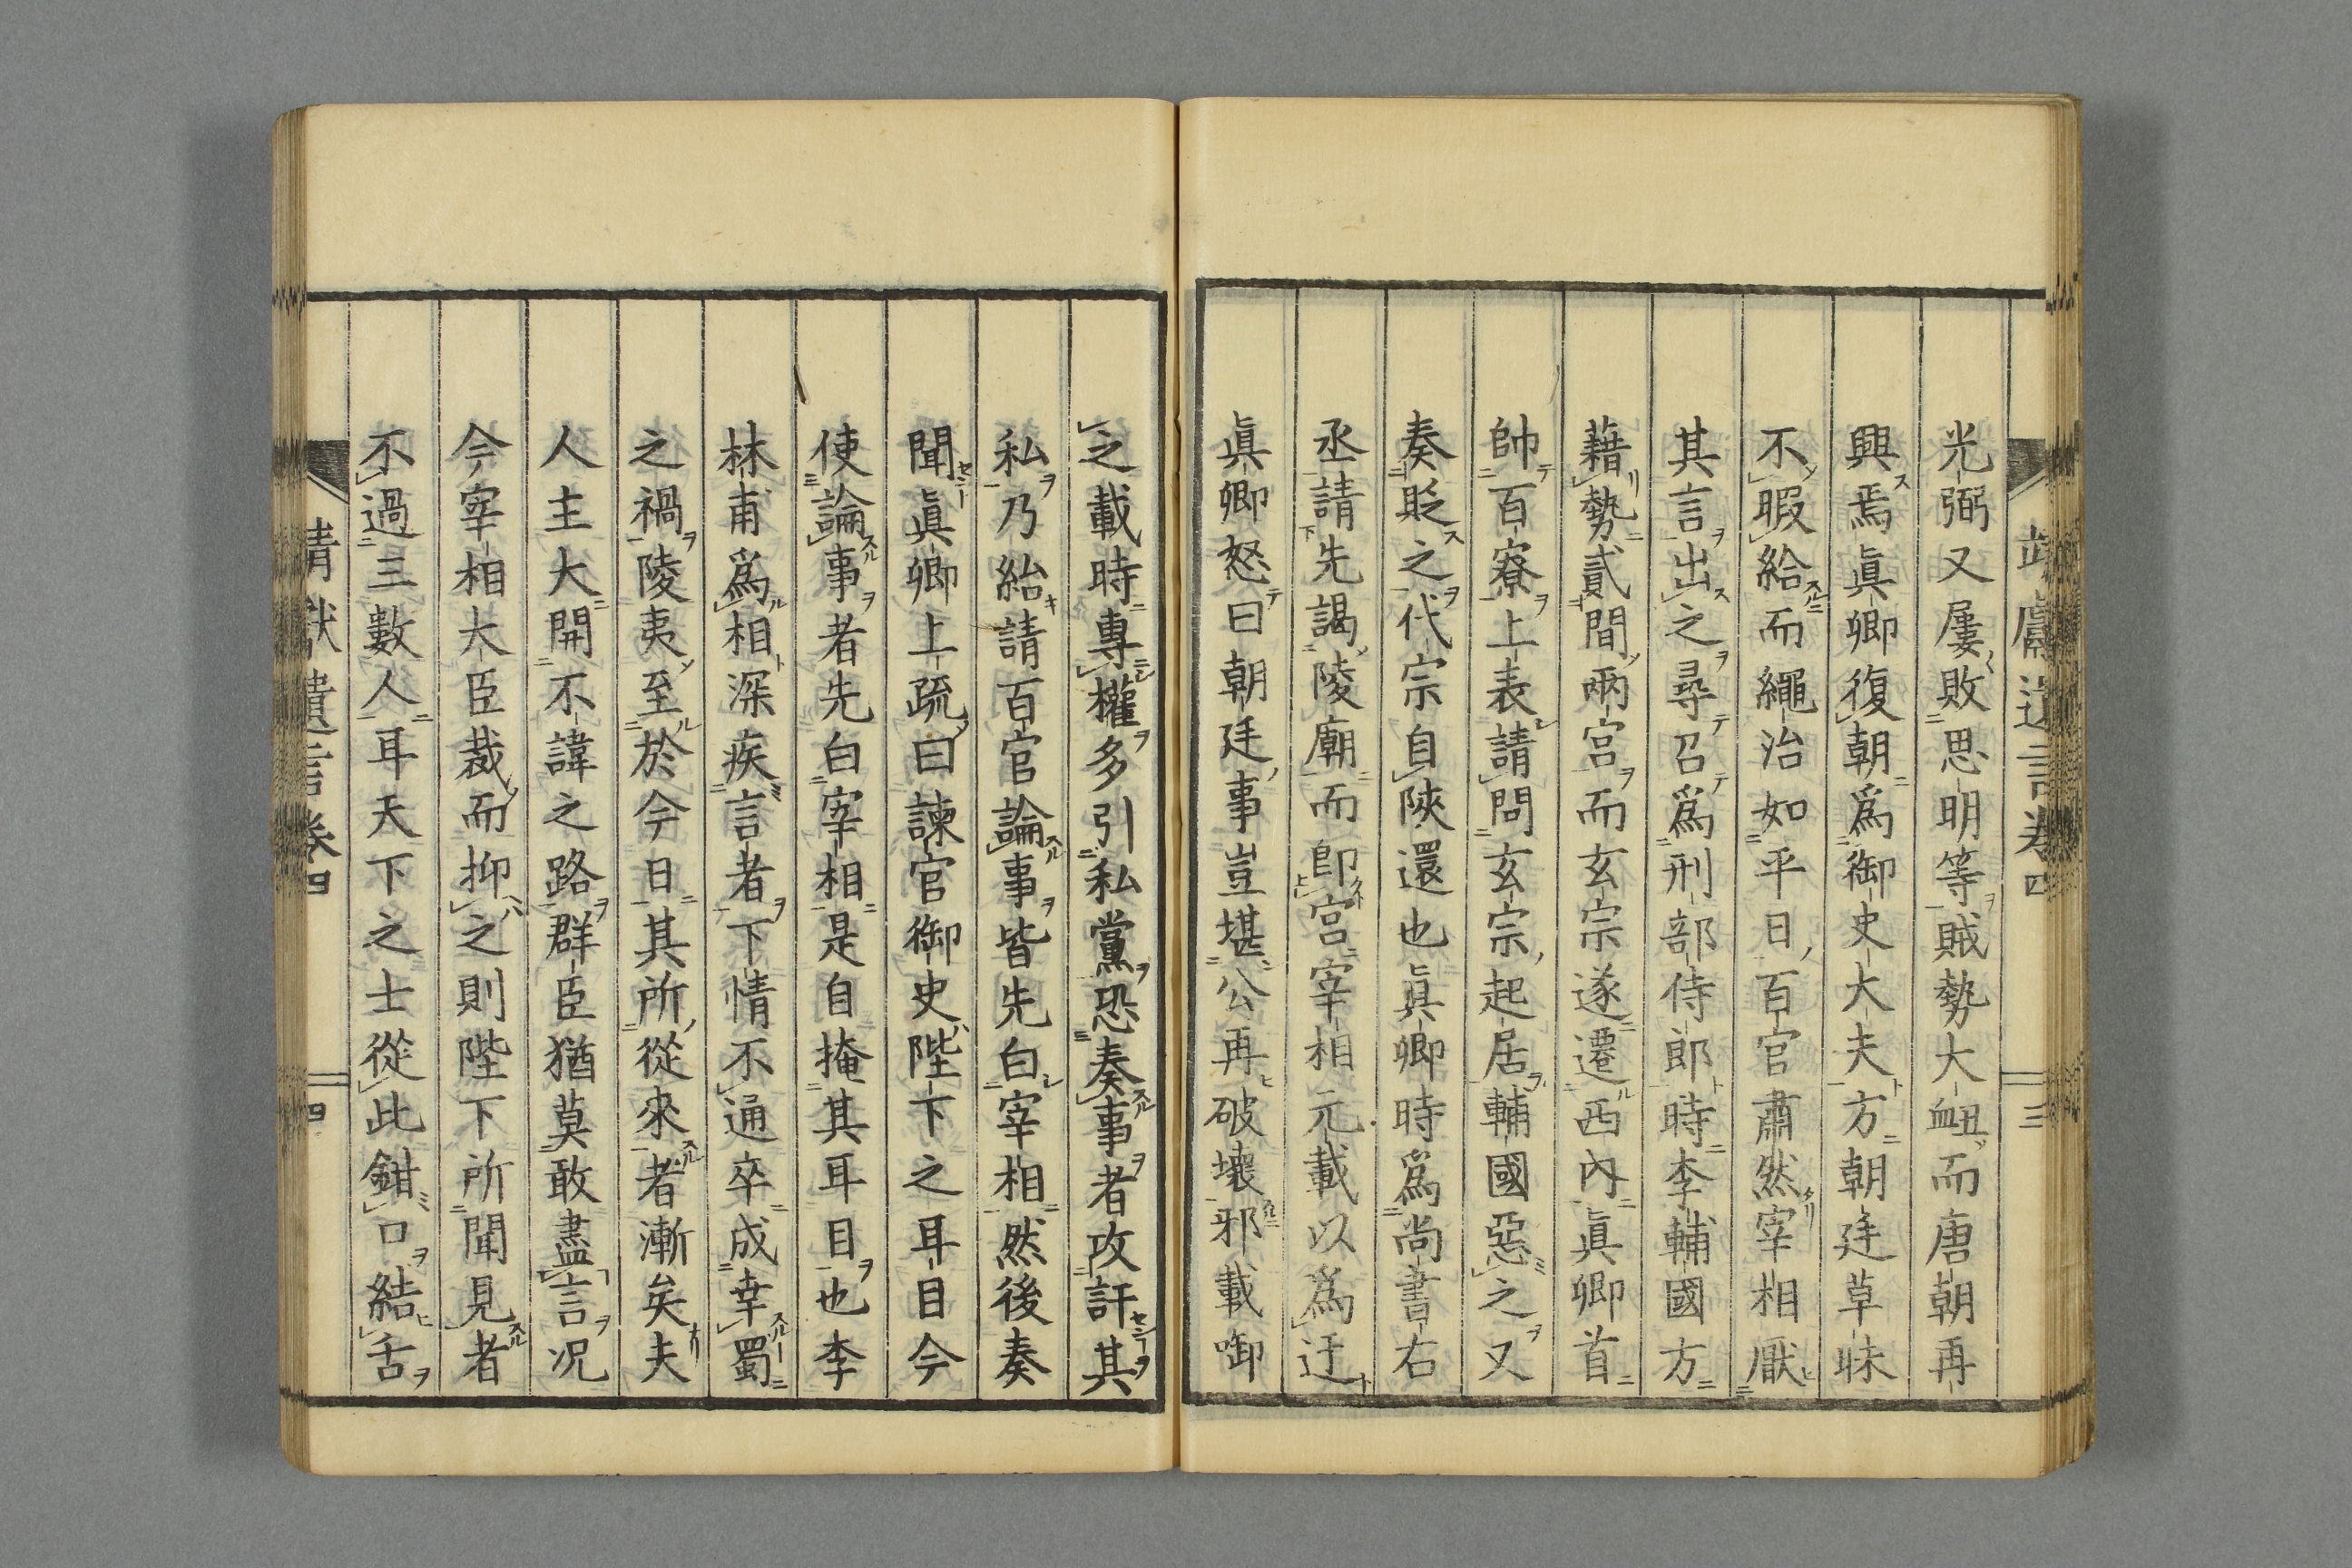 光弼又屢敗思明等賊勢大衄而唐朝再
興焉眞卿復朝爲御史大夫方朝廷草昧
不暇給而繩治如平日百官肅然宰相厭
其言出之尋召爲刑部侍郎時李輔國方
藉勢貳間兩宮而玄宗遂遷西內眞卿首
帥百寮上表請問玄宗起居輔國惡之又
奏貶之代宗自陝還也眞卿時爲尚書右
丞請先謁陵廟而卽宮宰相元載以爲迂
眞卿怒曰朝廷事豈堪公再破壞邪載啣
之載時專權多引私黨恐奏事者攻訐其
私乃紿請百官論事皆先白宰相然後奏
聞眞卿上疏曰諫官御史陛下之耳目今
使論事者先白宰相是自掩其耳目也李
林甫爲相深疾言者下情不通卒成幸蜀
之禍陵夷至於今日其所從來者漸矣夫
人主大開不諱之路群臣猶莫敢盡言况
今宰相大臣裁而抑之則陛下所聞見者
不過三數人耳天下之士從此鉗口結舌
靖獻遺言卷四
四